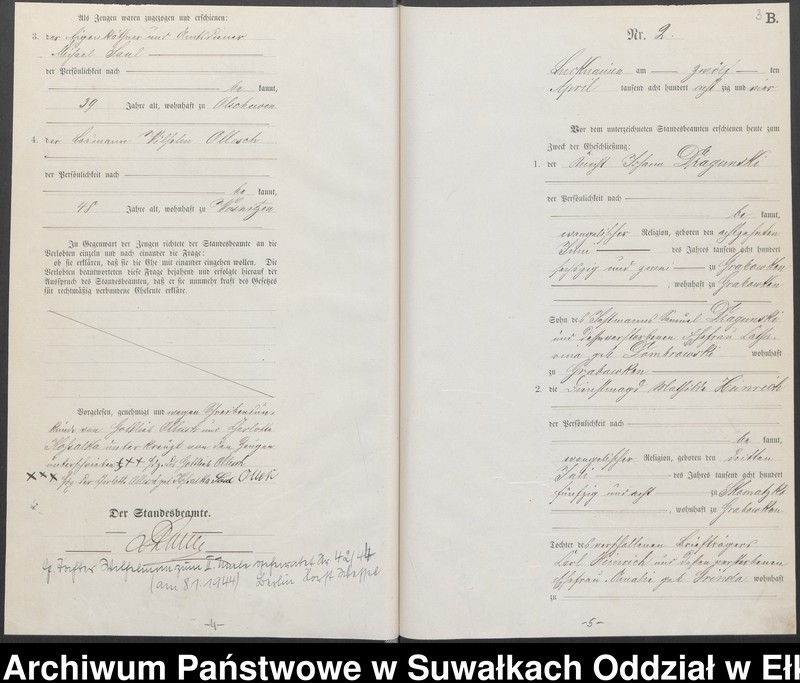 Als Zeugen waren zugezogen und erschienen:
3. der Eigenkäthner und Amtsdiener
Michael Saul
der Persönlichkeit nach
be kannt,
39 Jahre alt, wohnhaft zu
4. der Losmann Wilhelm Olksch
der Persönlichkeit nach
be kannt,
48 Jahre alt, wohnhaft zu
In Gegenwart der Zeugen richtete der Standesbeamte an die
Verlobten einzeln und nach einander die Frage:
ob sie erklären, daß sie die Ehe mit einander eingehen wollen. Die
Verlobten beantworteten diese Frage bejahend und erfolgte hierauf der
Ausspruch des Standesbeamten, daß er sie nunmehr kraft des Gesetzes
für rechtmäßig verbundene Eheleute erkläre.
Vorgelesen, genehmigt und wegen Schreibensun-
kunde von Gottlieb und Charlotte
Kossalka unterkreuzt von den Zeugen
unterschrieben +++ Hz. des Gottlieb
××× Hz. der Charlotte geb Kossalka
Der Standesbeamte.
zum II. Male geheiratet Nr 42/44
(am 8.1.1944) Berlin
-4-
3 B.
Nr. 2.
am zwölf ten
April tausend acht hundert acht zig und vier
Vor dem unterzeichneten Standesbeamten erschienen heute zum
Zweck der Eheschließung:
1. der Knecht Johann Dzagunski
der Persönlichkeit nach
be kannt,
evangelischer Religion, geboren den achtzehnten
Juni des Jahres tausend acht hundert
sechszig und zwei zu Grabowken
, wohnhaft zu Grabowken
Sohn des Instmanns Samuel Dzagunski
und dessen verstorbenen Ehefrau Catha-
rina geb Dombrowski wohnhaft
zu Grabowken
2. die Dienstmagd Mathilde Heinrich
der Persönlichkeit nach
be kannt,
evangelischer Religion, geboren den dritten
Juli des Jahres tausend acht hundert
fünfzig und acht zu Skomatzko
, wohnhaft zu Grabowken
Tochter des verschollenen Briefträgers
Carl Heinrich und dessen verstorbenen
Ehefrau Amalie geb wohnhaft
zu
-5-
Archiwum Państwowe w Suwałkach Oddział w Ełk